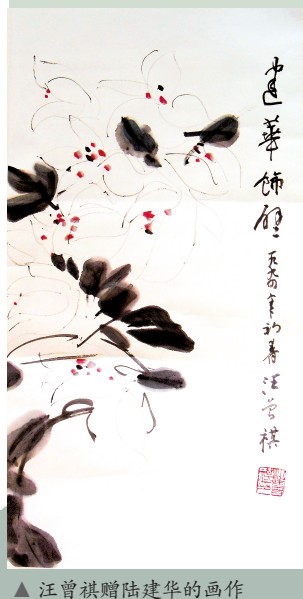 建華飾壁
一九九四年初春汪曾祺
▲ 汪曾祺赠陆建华的画作